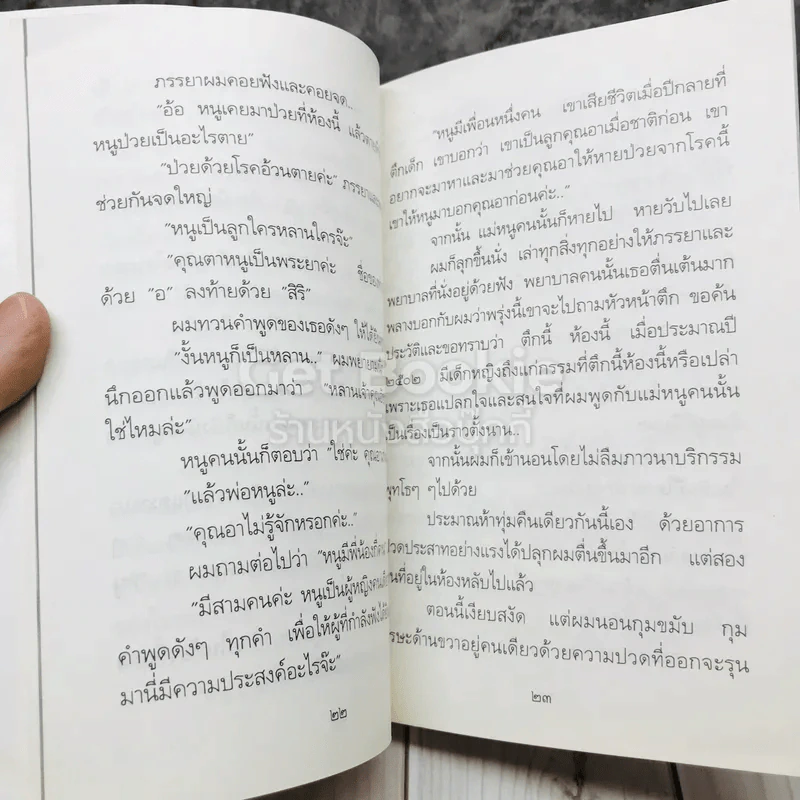 ภรรยาผมคอยฟังและคอยจด..
"อ้อ หนูเคยมาป่วยที่ห้องนี้ แล้ว
หนูป่วยเป็นอะไรตาย"
"ป่วยด้วยโรคอ้วนตายค่ะ" ภรรยา
ช่วยกันจดใหญ่
"หนูเป็นลูกใครหลานใครจ๊ะ"
"คุณตาหนูเป็นพระยาค่ะ
ด้วย "อ" ลงท้ายด้วย "สิริ"
ผมทวนคำพูดของเธอดังๆ
"งั้นหนูก็เป็นหลาน.."
นึกออกแล้วพูดออกมาว่า
ใช่ไหมล่ะ"
หนูคนนั้นก็ตอบว่า "ใช่ค่ะ
"แล้วพ่อหนูล่ะ.."
"คุณอาไม่รู้จักหรอกค่ะ.."
ผมถามต่อไปว่า "หนูมีพี่น้อง
"มีสามคนค่ะ หนูเป็นผู้หญิง
คำพูดดังๆ ทุกคำ เพื่อให้ผู้ที่กำลังฟัง
มานี่มีความประสงค์อะไรจ๊ะ"
๒๒
"หนูมีเพื่อนหนึ่งคน เขาเสียชีวิตเมื่อปีกลายที่
ตึกเด็ก เขาบอกว่า เขาเป็นลูกคุณอาเมื่อชาติก่อน เขา
อยากจะมาหาและมาช่วยคุณอาให้หายป่วยจากโรคนี้
เขาให้หนูมาบอกคุณอาก่อนค่ะ.."
จากนั้น แม่หนูคนนั้นก็หายไป หายวับไปเลย
ผมก็ลุกขึ้นนั่ง เล่าทุกสิ่งทุกอย่างให้ภรรยาและ
พยาบาลที่นั่งอยู่ด้วยฟัง พยาบาลคนนั้นเธอตื่นเต้นมาก
พลางบอกกับผมว่าพรุ่งนี้เขาจะไปถามหัวหน้าตึก ขอค้น
ประวัติและขอทราบว่า ตึกนี้ ห้องนี้ เมื่อประมาณปี
๒๕๐๒ มีเด็กหญิงถึงแก่กรรมที่ตึกนี้ห้องนี้หรือเปล่า
เพราะเธอแปลกใจและสนใจที่ผมพูดกับแม่หนูคนนั้น
เป็นเรื่องเป็นราวตั้งนาน..
จากนั้นผมก็เข้านอนโดยไม่ลืมภาวนาบริกรรม
พุทโธๆ ๆไปด้วย
ประมาณห้าทุ่มคืนเดียวกันนี้เอง ด้วยอาการ
ปวดประสาทอย่างแรงได้ปลุกผมตื่นขึ้นมาอีก แต่สอง
คนที่อยู่ในห้องหลับไปแล้ว
ตอนนี้เงียบสงัด แต่ผมนอนกุมขมับ กุม
ศีรษะด้านขวาอยู่คนเดียวด้วยความปวดที่ออกจะรุน
๒๓
Get Bookie